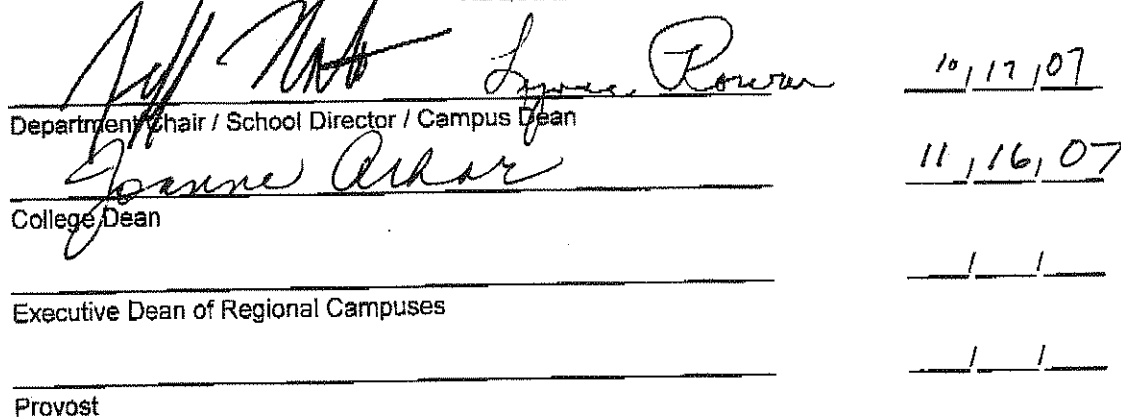 Jeff Lynne Rowan 10/17/07
Department Chair / School Director / Campus Dean
Joanne Arhar 11/16/07
College Dean
/ /
Executive Dean of Regional Campuses
/ /
Provost